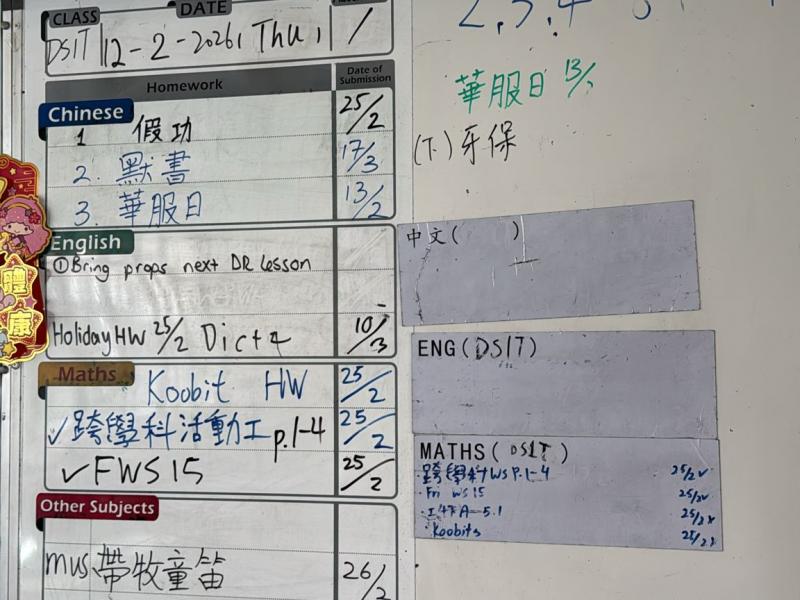 CLASS DATE
DS1T 12-2-2026, Thu, 1
Homework Date of Submission
Chinese
1 假功 25/2
2. 默書 17/3
3. 華服日 13/2
English
①Bring props next DR lesson
Holiday HW 25/2 Dict 4 10/3
Maths
Koobit HW 25/2
✓跨學科活動工 p.1-4 25/2
✓FWS 15 25/2
Other Subjects
mus、帶牧童笛 26/2
體
康
2,3,4
華服日 13/
(下)牙保
中文( )
ENG(DS1T)
MATHS(DS1T)
·跨學科WS P.1-4 25/2✓
·Fri WS 15 25/2✓
5.1 25/2x
·Koobits 25/2